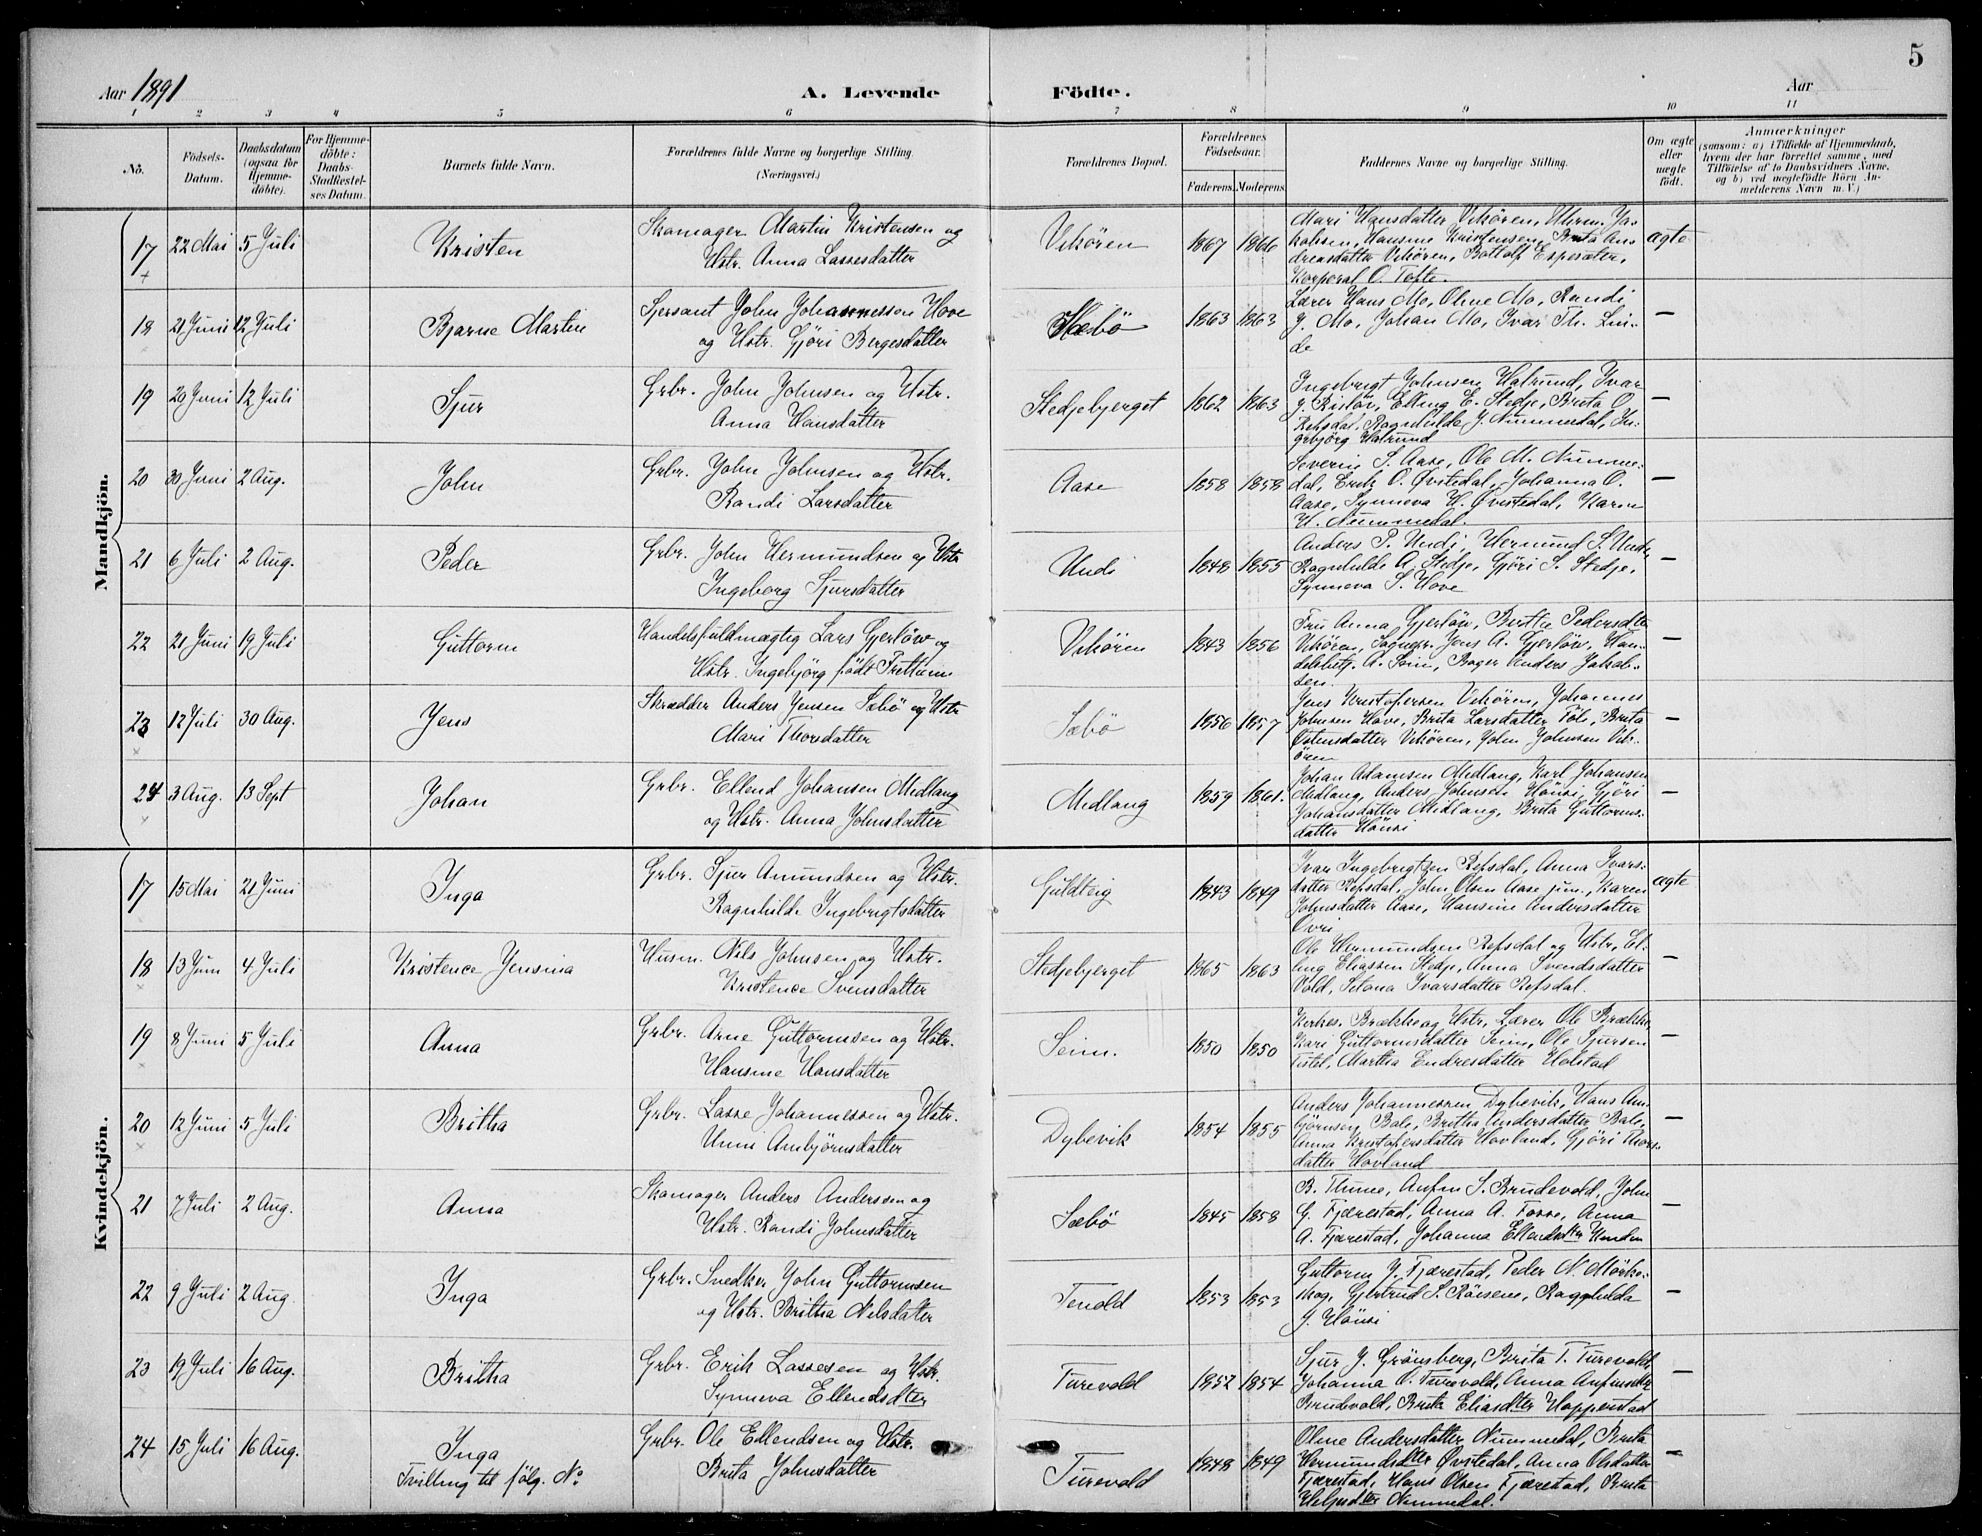 5
Aar 1891
A. Levende Födte.
Aar
1 2 3 4 5 6 7 8 9 10 11
No.
Födsels-Datum.
Daabsdatum (ogsaa for Hjemme-döbte).
For Hjemme-döbte: Daabs-Stadfæstel-ses Datum.
Barnets fulde Navn.
Forældrenes fulde Navne og borgerlige Stilling. (Næringsvei.)
Forældrenes Bopæl.
Forældrenes Födselsaar.
Faderens. Moderens.
Faddernes Navne og borgerlige Stilling.
Om ægte eller uægte födt.
Anmærkninger
(saasom: a) i Tilfælde af Hjemmedaab,
hvem der har forrettet samme, med
Tilföielse af to Daabsvidners Navne,
og b) ved uægtefödte Börn An-
melderens Navn m. V.)
Mandkjön.
17 22 Mai 5 Juli Kristen Skomager Martin Kristensen og
Hstr. Anna Lassesdatter Vikören 1867 1866 ægte
Mari Hansdatter Vikören, Ja-
kobsen, Hansine Kristensen, Brita An-
dreasdatter Vikören, Bottolf Espesæter,
Korporal O. Tofte.
18 21 Juni 12 Juli Bjarne Martin Sjersant John Johannessen Hove
og Hstr. Gjöri Bergesdatter Sæbö 1863 1863 —
Lærer Hans Mo, Oline Mo, Randi
J. Mo, Johan Mo, Ivar Th. Lin-
de
19 20 Juni 12 Juli Sjur Grbr. John Johnsen og Hstr.
Anna Hansdatter Stedjebjerget 1862 1863 —
Ingebrigt Johnsen Halrund, Ivar
J. Risløv, Elling E. Stedje, Brita O.
Refsdal, Ragnhilde J. Nummedal, In-
gebjörg Halrund
20 30 Juni 2 Aug. John Grbr. John Johnsen og Hstr.
Randi Larsdatter Aase 1858 1858 —
Severin S. Aase, Ole M. Numme-
dal, Erik O. Øvstedal, Johanna O.
Aase, Synneva H. Øvstedal, Karen
H. Nummedal.
21 6 Juli 2 Aug. Peder Grbr. John Hermundsen og Hstr
Ingeborg Sjursdatter Undi 1848 1855 —
Anders P. Undi, Hermund S. Undi,
Ragnhilde A. Stedje, Gjöri S. Stedje,
Synneva S. Hove
22 21 Juni 19 Juli Guttorm Handelsfuldmægtig Lars Gjerløw og
Hstr. Ingebjörg født Frettum Vikören 1843 1856
Fru Anna Gjerløw, Brithe Pedersdtter
Vikören, Sagfgr. Jens A. Gjerløw, Han-
delsbetj. A. Seim, Bager Anders Jakob-
sen.
23 12 Juli 30 Aug. Jens Skrædder Anders Jensen Sæbö og Hstr
Mari Thorsdatter Sæbö 1856 1857 —
Jens Kristofersen Vikören, Johannes
Johnsen Hove, Brita Larsdatter Föli, Brita
Østensdatter Vikören, John Johnsen Vik-
ören
24 3 Aug. 13 Sept Johan Grbr. Ellend Johansen Midlang
og Hstr. Anna Johnsdatter Midlang 1859 1861. —
Johan Adamsen Midlang, Karl Johansen
Midlang, Anders Johnsen Hönsi, Gjöri
Johansdatter Midlang, Brita Guttorms-
datter Hönsi
Kvindekjön.
17 15 Mai 21 Juni Inga Grbr. Sjur Amundsen og Hstr.
Ragnhilde Ingebrigtsdatter Guldteig 1843 1849 ægte
Ivar Ingebrigtsen Refsdal, Anna Ivars-
datter Refsdal, John Olsen Aase jun., Karen
Johnsdatter Aase, Hansine Andersdatter
Øvri
18 13 Juni 4 Juli Kristence Jensina Husm. Nils Johnsen og Hstr.
Kristence Svensdatter Stedjebjerget 1865 1863 —
Ole Hermundsen Refsdal og Hstr, El-
ling Eliassen Stedje, Anna Svendsdatter
Vold, Setona Ivarsdatter Refsdal.
19 8 Juni 5 Juli Anna Grbr. Arne Guttormsen og Hstr.
Hansine Hansdatter Seim. 1850 1850
Kirkes. Brække og Hstr, Lærer Ole Brække,
Kari Guttormsdatter Seim, Ole Sjursen
Tistel, Martha Endresdatter Holstad
20 12 Juni 5 Juli Britha Grbr. Lasse Johannessen og Hstr.
Unni Anbjörnsdatter Dybevik 1854 1855 —
Anders Johannessen Dybevik, Hans An-
björnsen Bale, Britha Andersdatter Bale,
Anna Kristofersdatter Hovland, Gjöri Thors-
datter Hovland
21 7 Juli 2 Aug. Anna Skomager Anders Anderssen og
Hstr. Randi Johnsdatter Sæbö 1845 1858 —
B. Thune, Anfin S. Brudevold, John
G. Fjærestad, Anna A. Fosse, Anna
A. Fjærestad, Johanna Ellendsdtter Undin
22 9 Juli 2 Aug. Inga Grbr. Snedker John Guttormsen
og Hstr. Britha Nilsdatter Tenold 1853 1853 —
Guttorm J. Fjærestad, Peder N. Mörke-
skog, Gjertrud S. Röisene, Ragnhilda
J. Hönsi
23 19 Juli 16 Aug. Britha Grbr. Erik Lassesen og Hstr.
Synneva Ellendsdtter Turevold 1852 1854 —
Sjur J. Grönsberg, Brita T. Turevold,
Johanna O. Turevold, Anna Anfinsdtter
Brudevold, Brita Eliasdtter Hoppenstad
24 15 Juli 16 Aug. Inga
Tvilling til følg. No Grbr. Ole Ellendsen og Hstr.
Brita Johnsdatter Turevold 1848 1849 —
Oline Andersdatter Nummedal, Brita
Hermundsdtter Øvstedal, Anna Olsdatter
Fjærestad, Hans Olsen Fjærestad, Brita
Heljesdtter Nummedal.